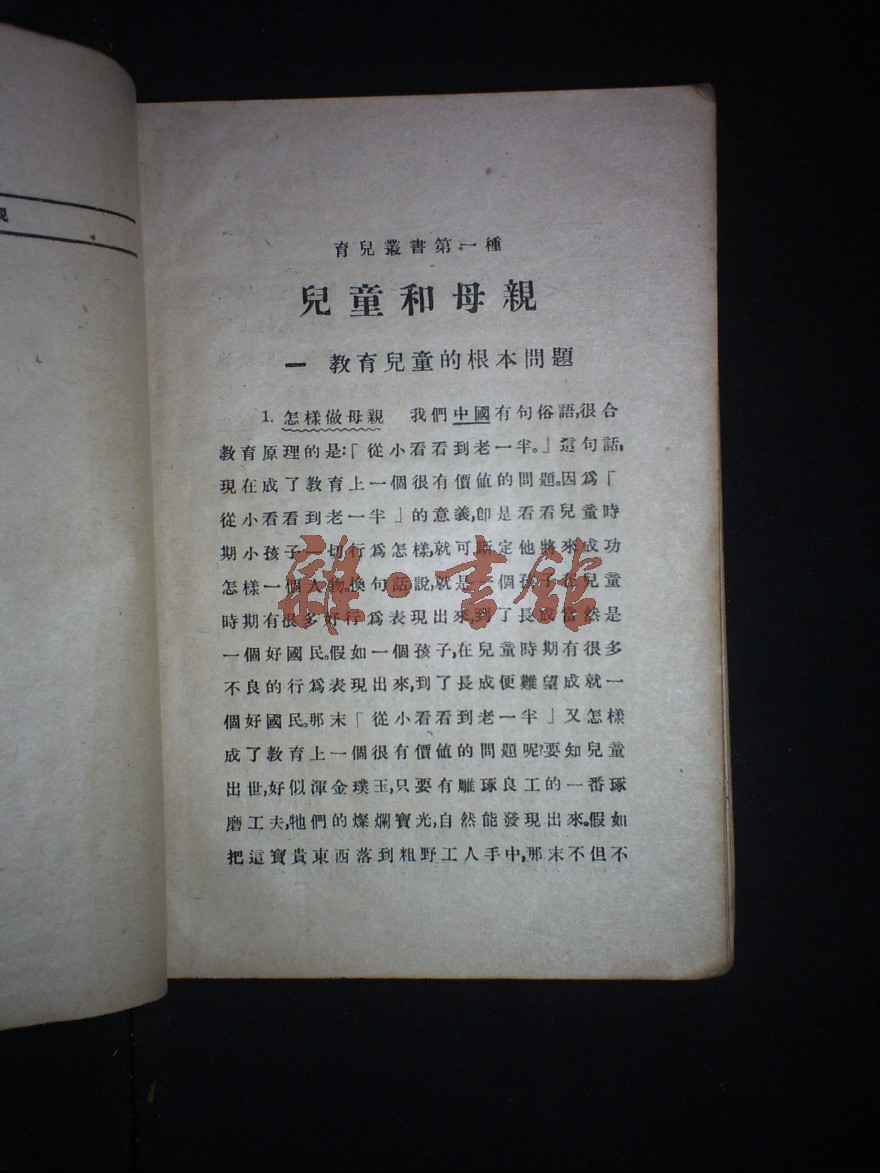 親
育兒叢書第一種
兒童和母親
一 教育兒童的根本問題
1. 怎樣做母親 我們中國有句俗語,很合
教育原理的是:「從小看看到老一半。」這句話,
現在成了教育上一個很有價値的問題。因爲「
從小看看到老一半」的意義,卽是看看兒童時
期小孩子一切行爲怎樣,就可斷定他將來成功
怎樣一個人物。換句話說,就是一個孩子在兒童
時期有很多好行爲表現出來,到了長成當然是
一個好國民。假如一個孩子,在兒童時期有很多
不良的行爲表現出來,到了長成便難望成就一
個好國民。那末「從小看看到老一半」又怎樣
成了教育上一個很有價値的問題呢?要知兒童
出世,好似渾金璞玉,只要有雕琢良工的一番琢
磨工夫,牠們的燦爛寶光,自然能發現出來。假如
把這寶貴東西落到粗野工人手中,那末不但不
雜·書館